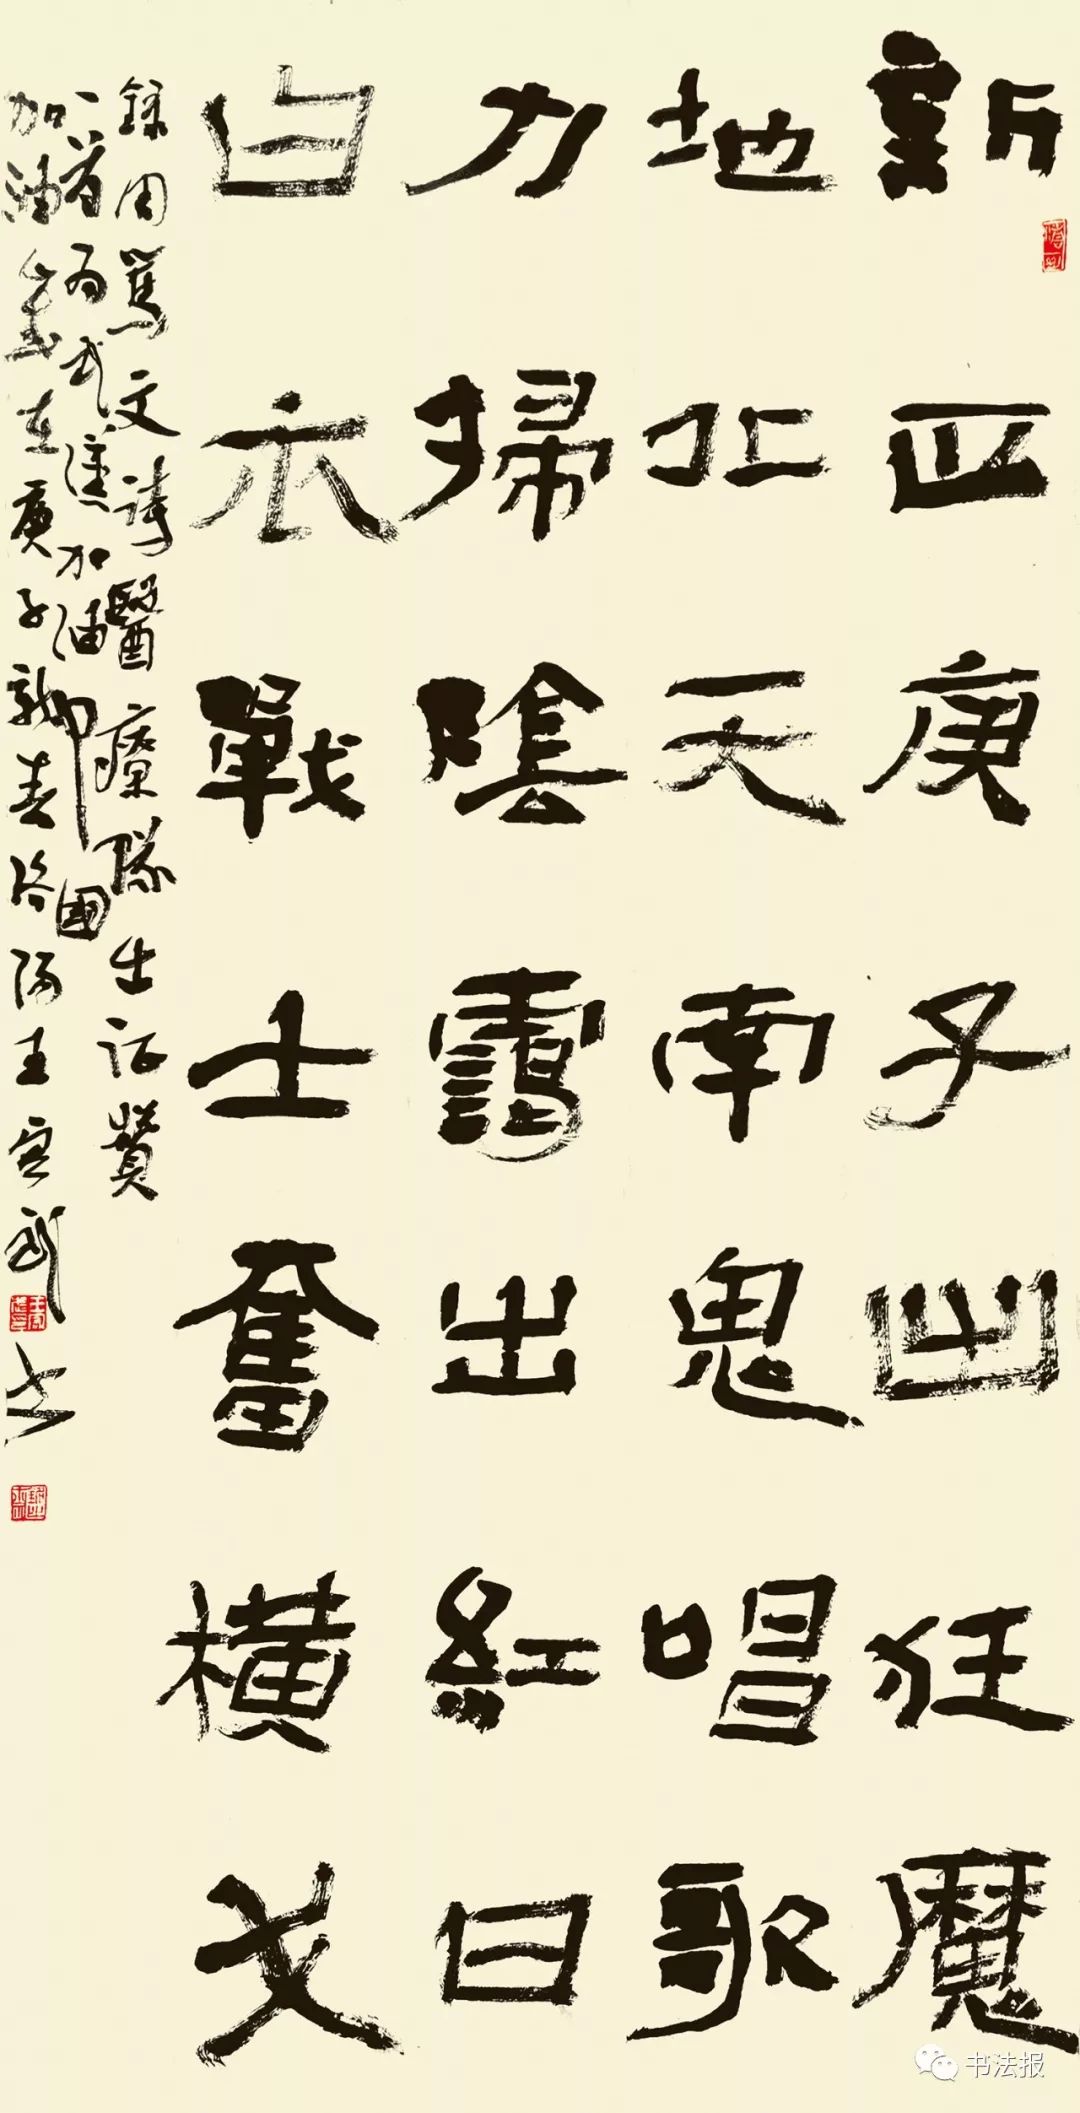 新正庚子出狂魔
地北天南鬼唱歌
力掃陰霾出紅日
白衣戰士奮橫戈
錄周篤文詩醫療隊出征贊
一首為武漢加油中國
加油歲在庚子新春洛陽王宜武書
书法报